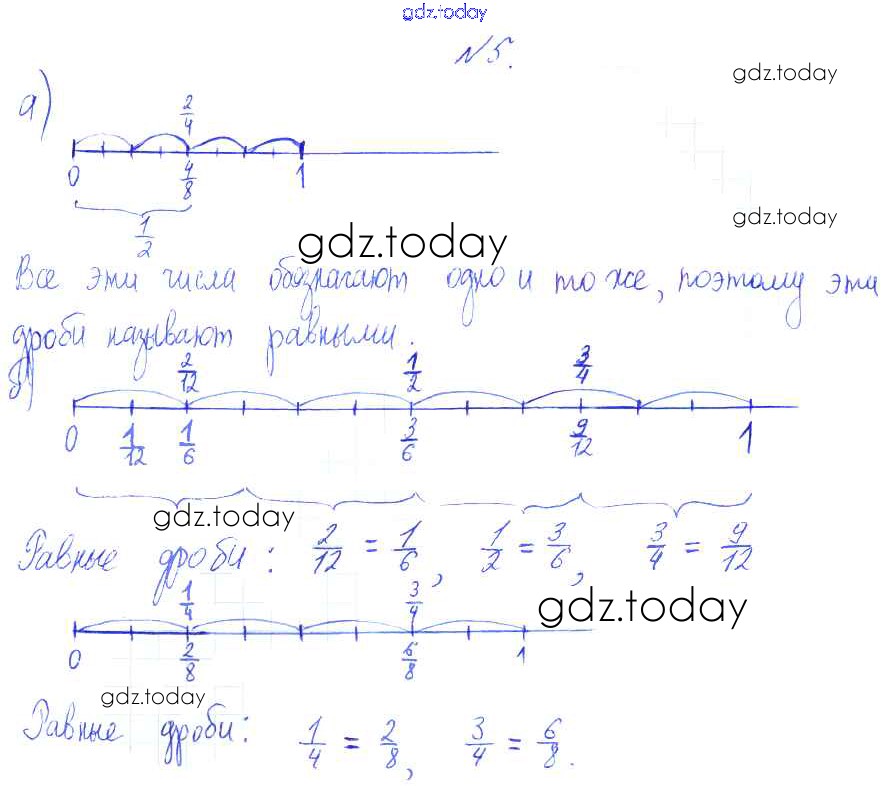 gdz.today
№5.
gdz.today
а)
2/4
0 4/8 1
1/2
gdz.today
gdz.today
Все эти числа обозначают одно и то же, поэтому эти
дроби называют равными.
б)
2/12 1/2 3/4
0 1/12 1/6 3/6 9/12 1
gdz.today
Равные дроби: 2/12 = 1/6, 1/2 = 3/6, 3/4 = 9/12
1/4 3/4
gdz.today
0 2/8 6/8 1
gdz.today
Равные дроби: 1/4 = 2/8, 3/4 = 6/8.